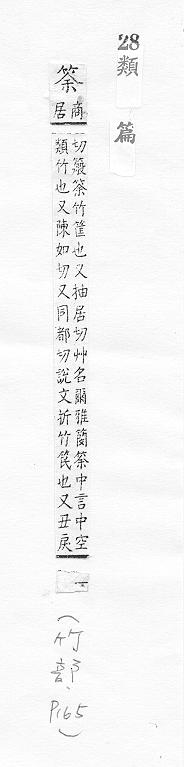 28
類篇
筡
商居
切簸筡竹筐也又抽居切艸名爾雅簢筡中言中空
類竹也又陳如切又同都切說文折竹笢也又丑戾
一
(竹部、P165)